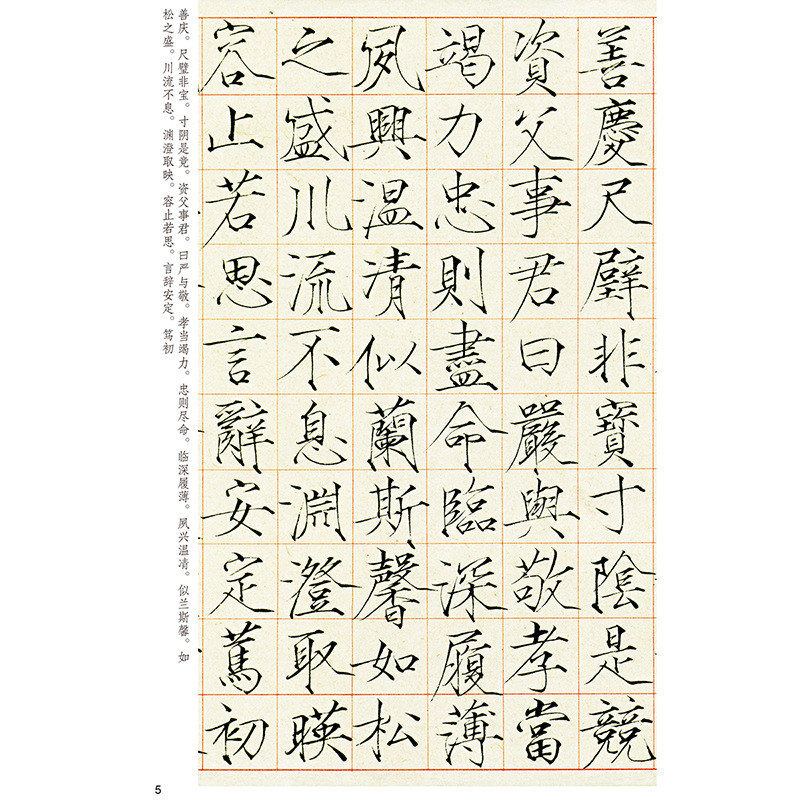 善慶尺璧非寶寸陰是競
資父事君曰嚴與敬孝當
竭力忠則盡命臨深履薄
夙興温凊似蘭斯馨如松
之盛川流不息淵澄取暎
容止若思言辭安定篤初
善庆。尺璧非宝。寸阴是竞。资父事君。曰严与敬。孝当竭力。忠则尽命。临深履薄。夙兴温凊。似兰斯馨。如
松之盛。川流不息。渊澄取映。容止若思。言辞安定。笃初
5